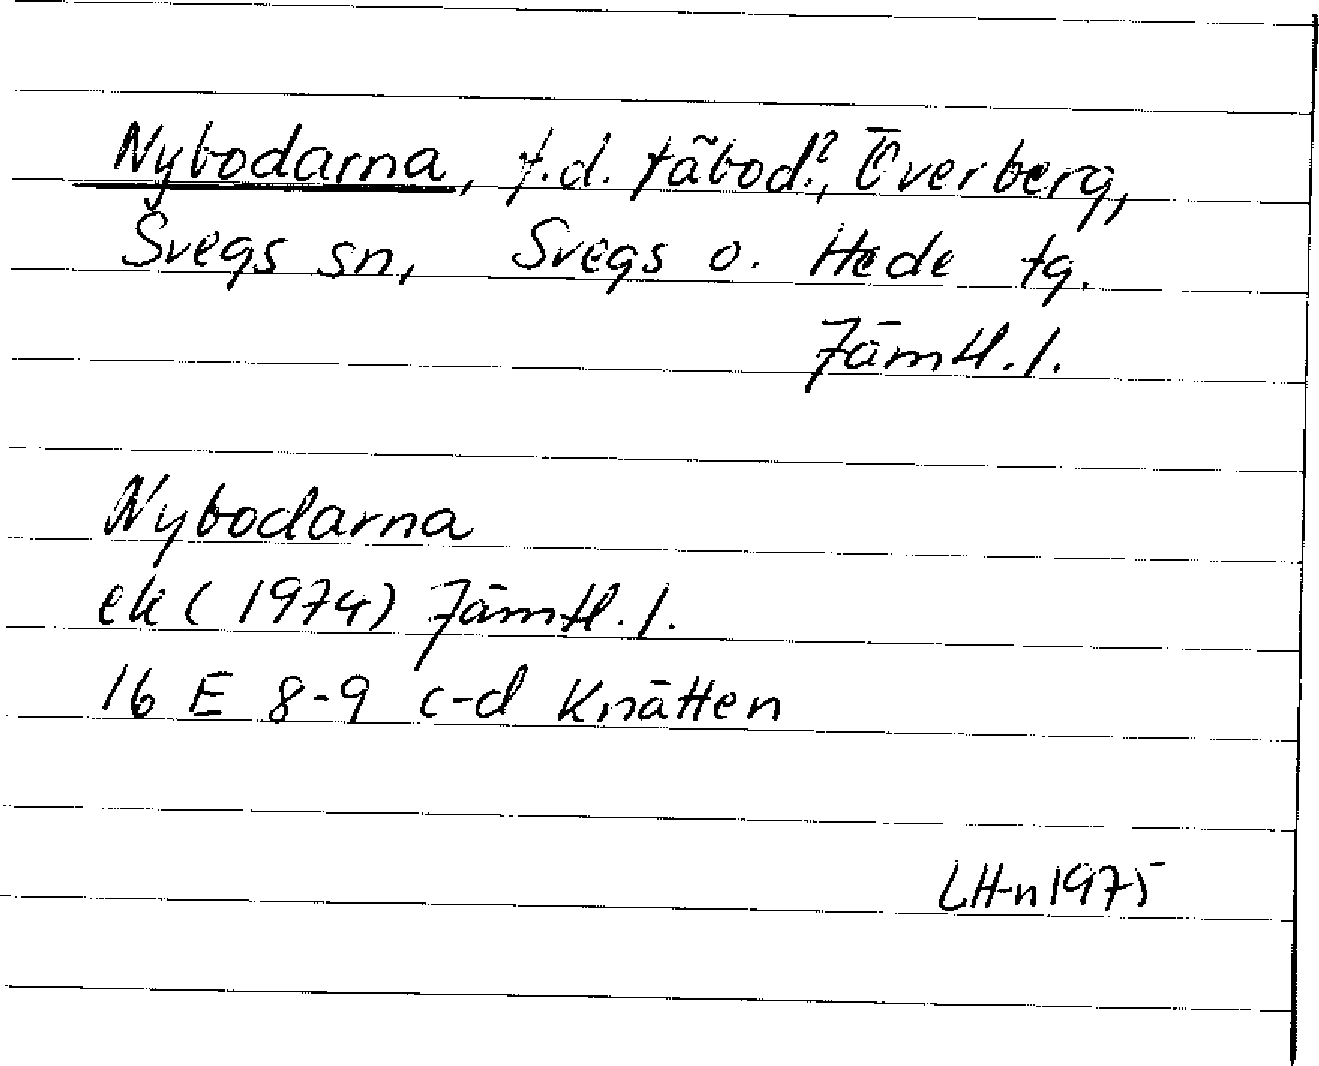 Nybodarna, f.d. fäbod?, Överberg,
Svegs sn, Svegs o. Hede tg.
Jämtl. l.
Nybodarna
ek (1974) Jämtl. l.
16 E 8-9 c-d Knätten
LH-n 1975